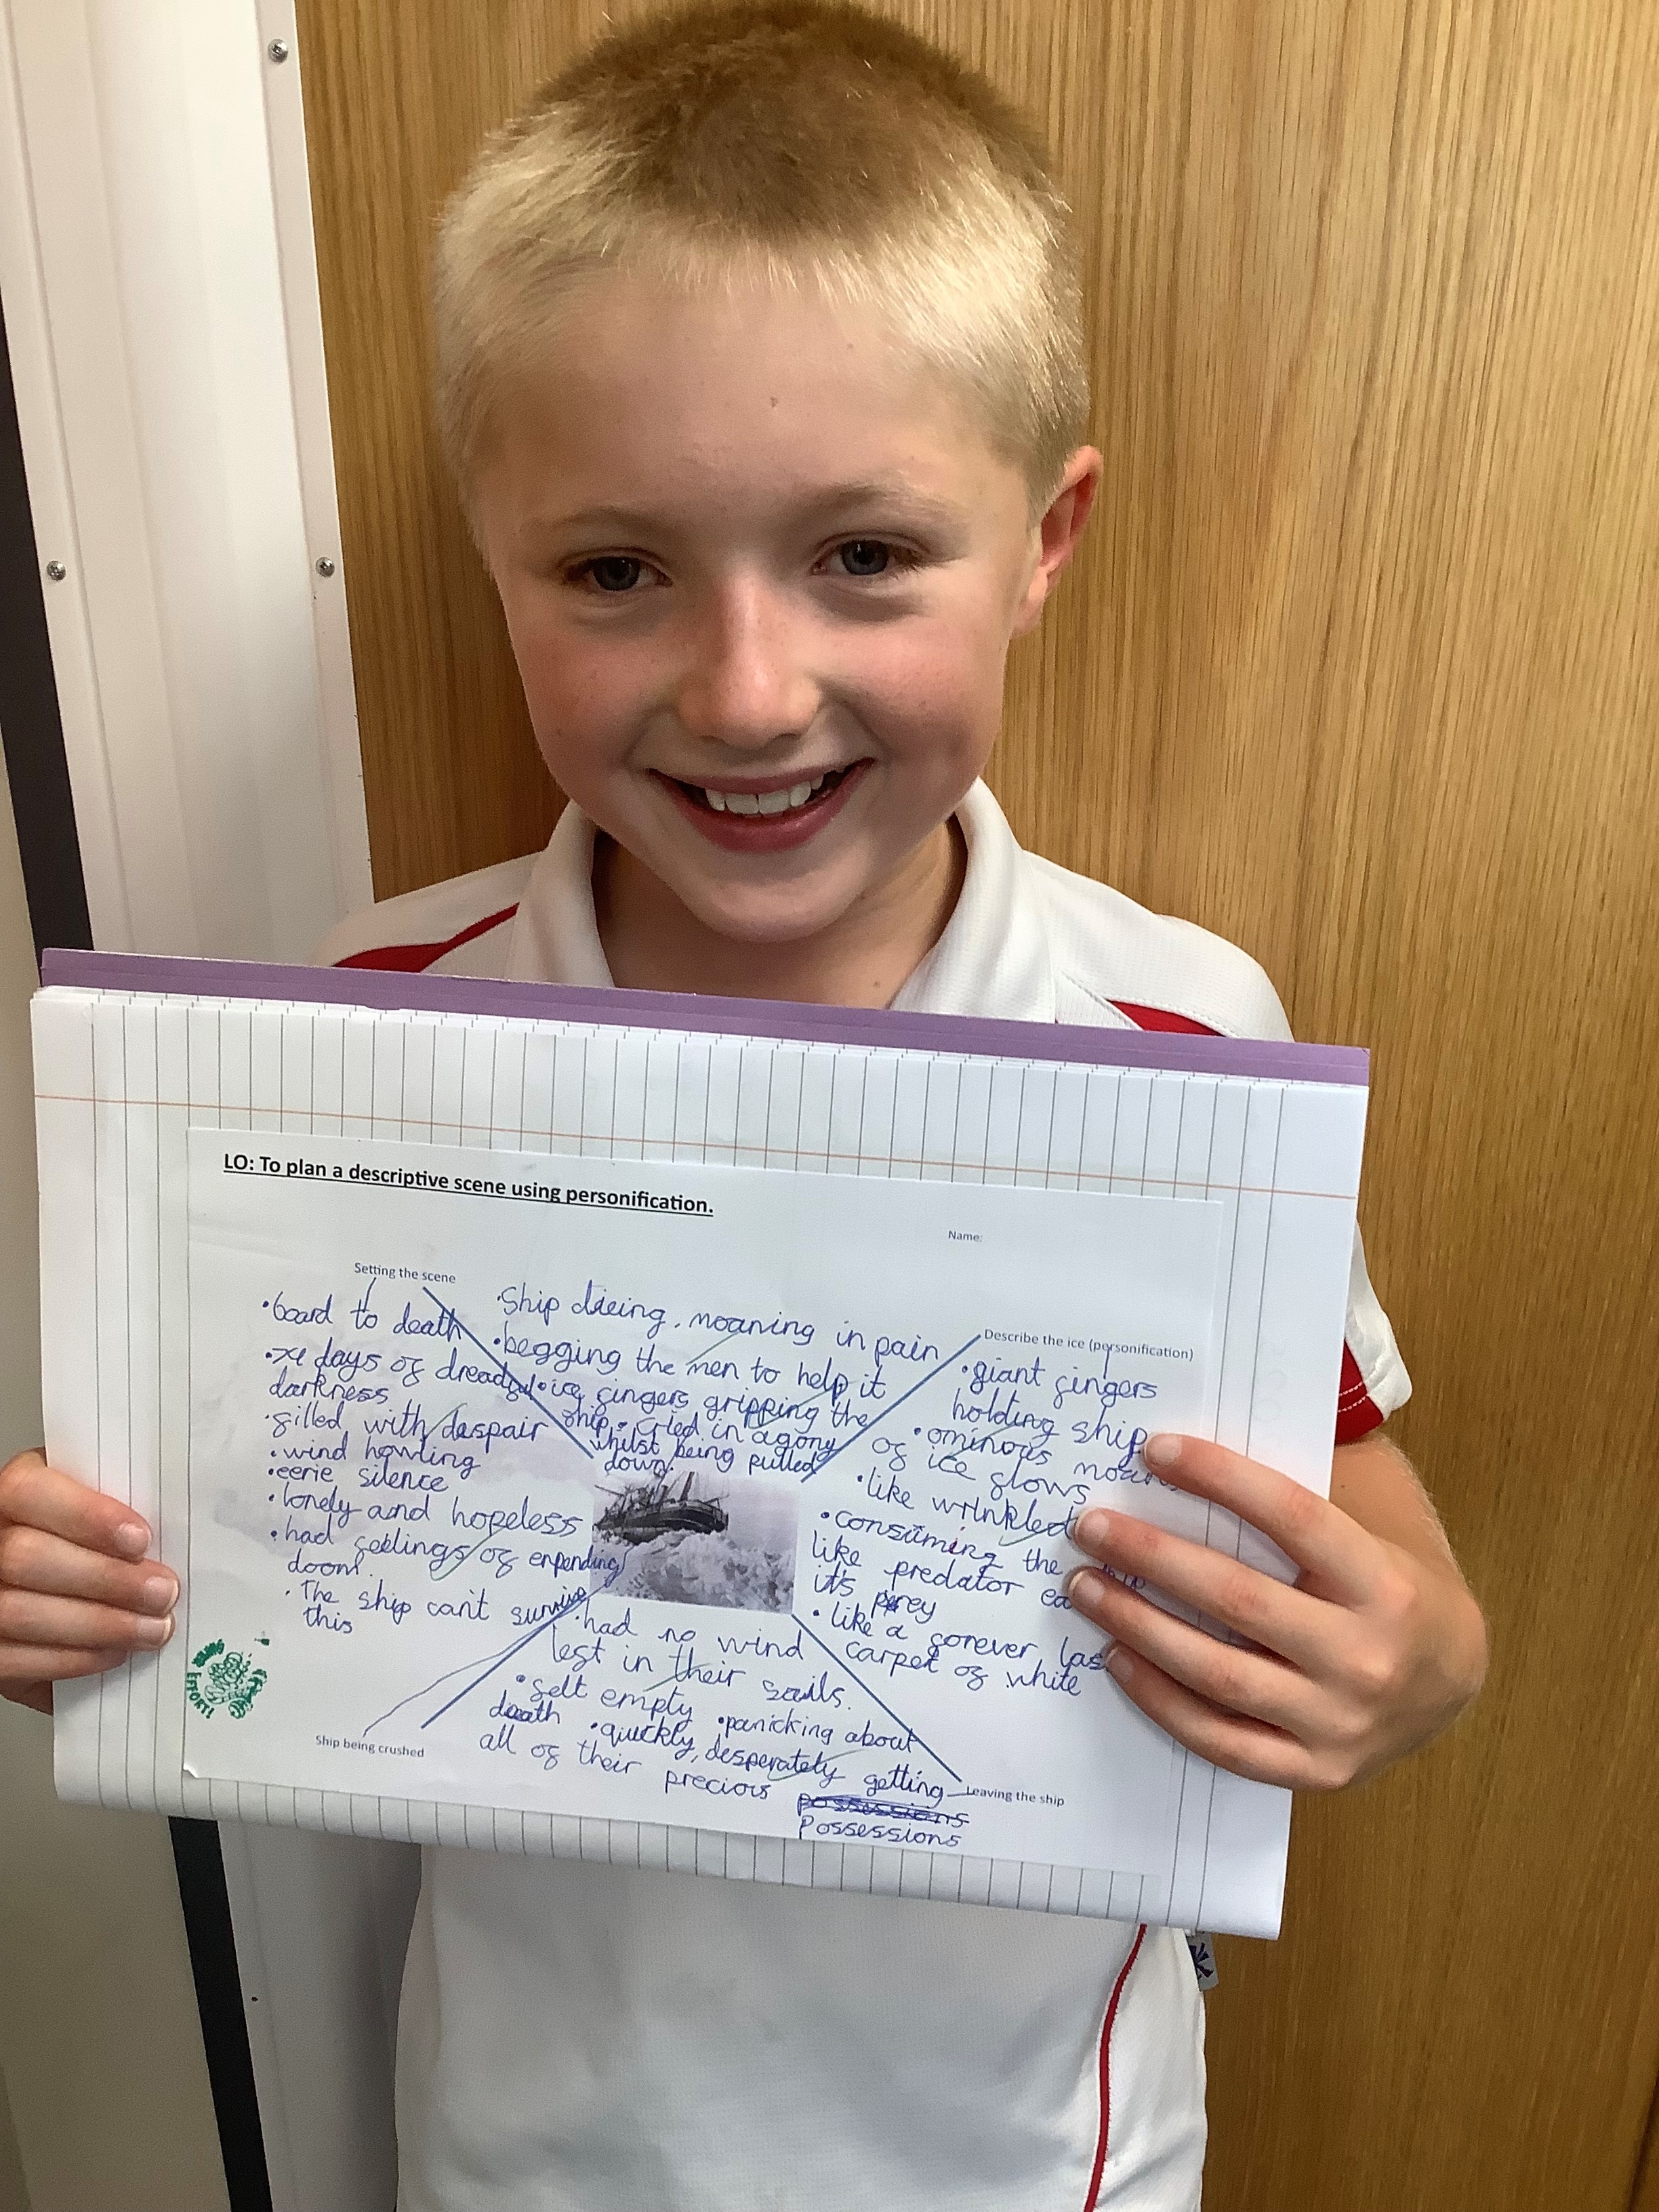 LO: To plan a descriptive scene using personification.
Name:
Setting the scene
•board to death
days of dreadful
darkness
•filled with despair
•wind howling
•eerie silence
•lonely and hopeless
•had feelings of enpending
doom.
•The ship can't survive
this
•Ship dieing, moaning in pain
•begging the men to help it
•ice fingers gripping the
ship •cried in agony
whilst being pulled
down.
Describe the ice (personification)
•giant fingers
holding ship
•ominous
of ice flows
•like wrinkled
•consuming the
like predator
it's prey
•like a forever
carpet of white
•had no wind
left in their sails.
•felt empty
•panicking about
death •quickly, desperately getting
all of their precious
Possessions
Ship being crushed
Leaving the ship
SUPER
EFFORT!